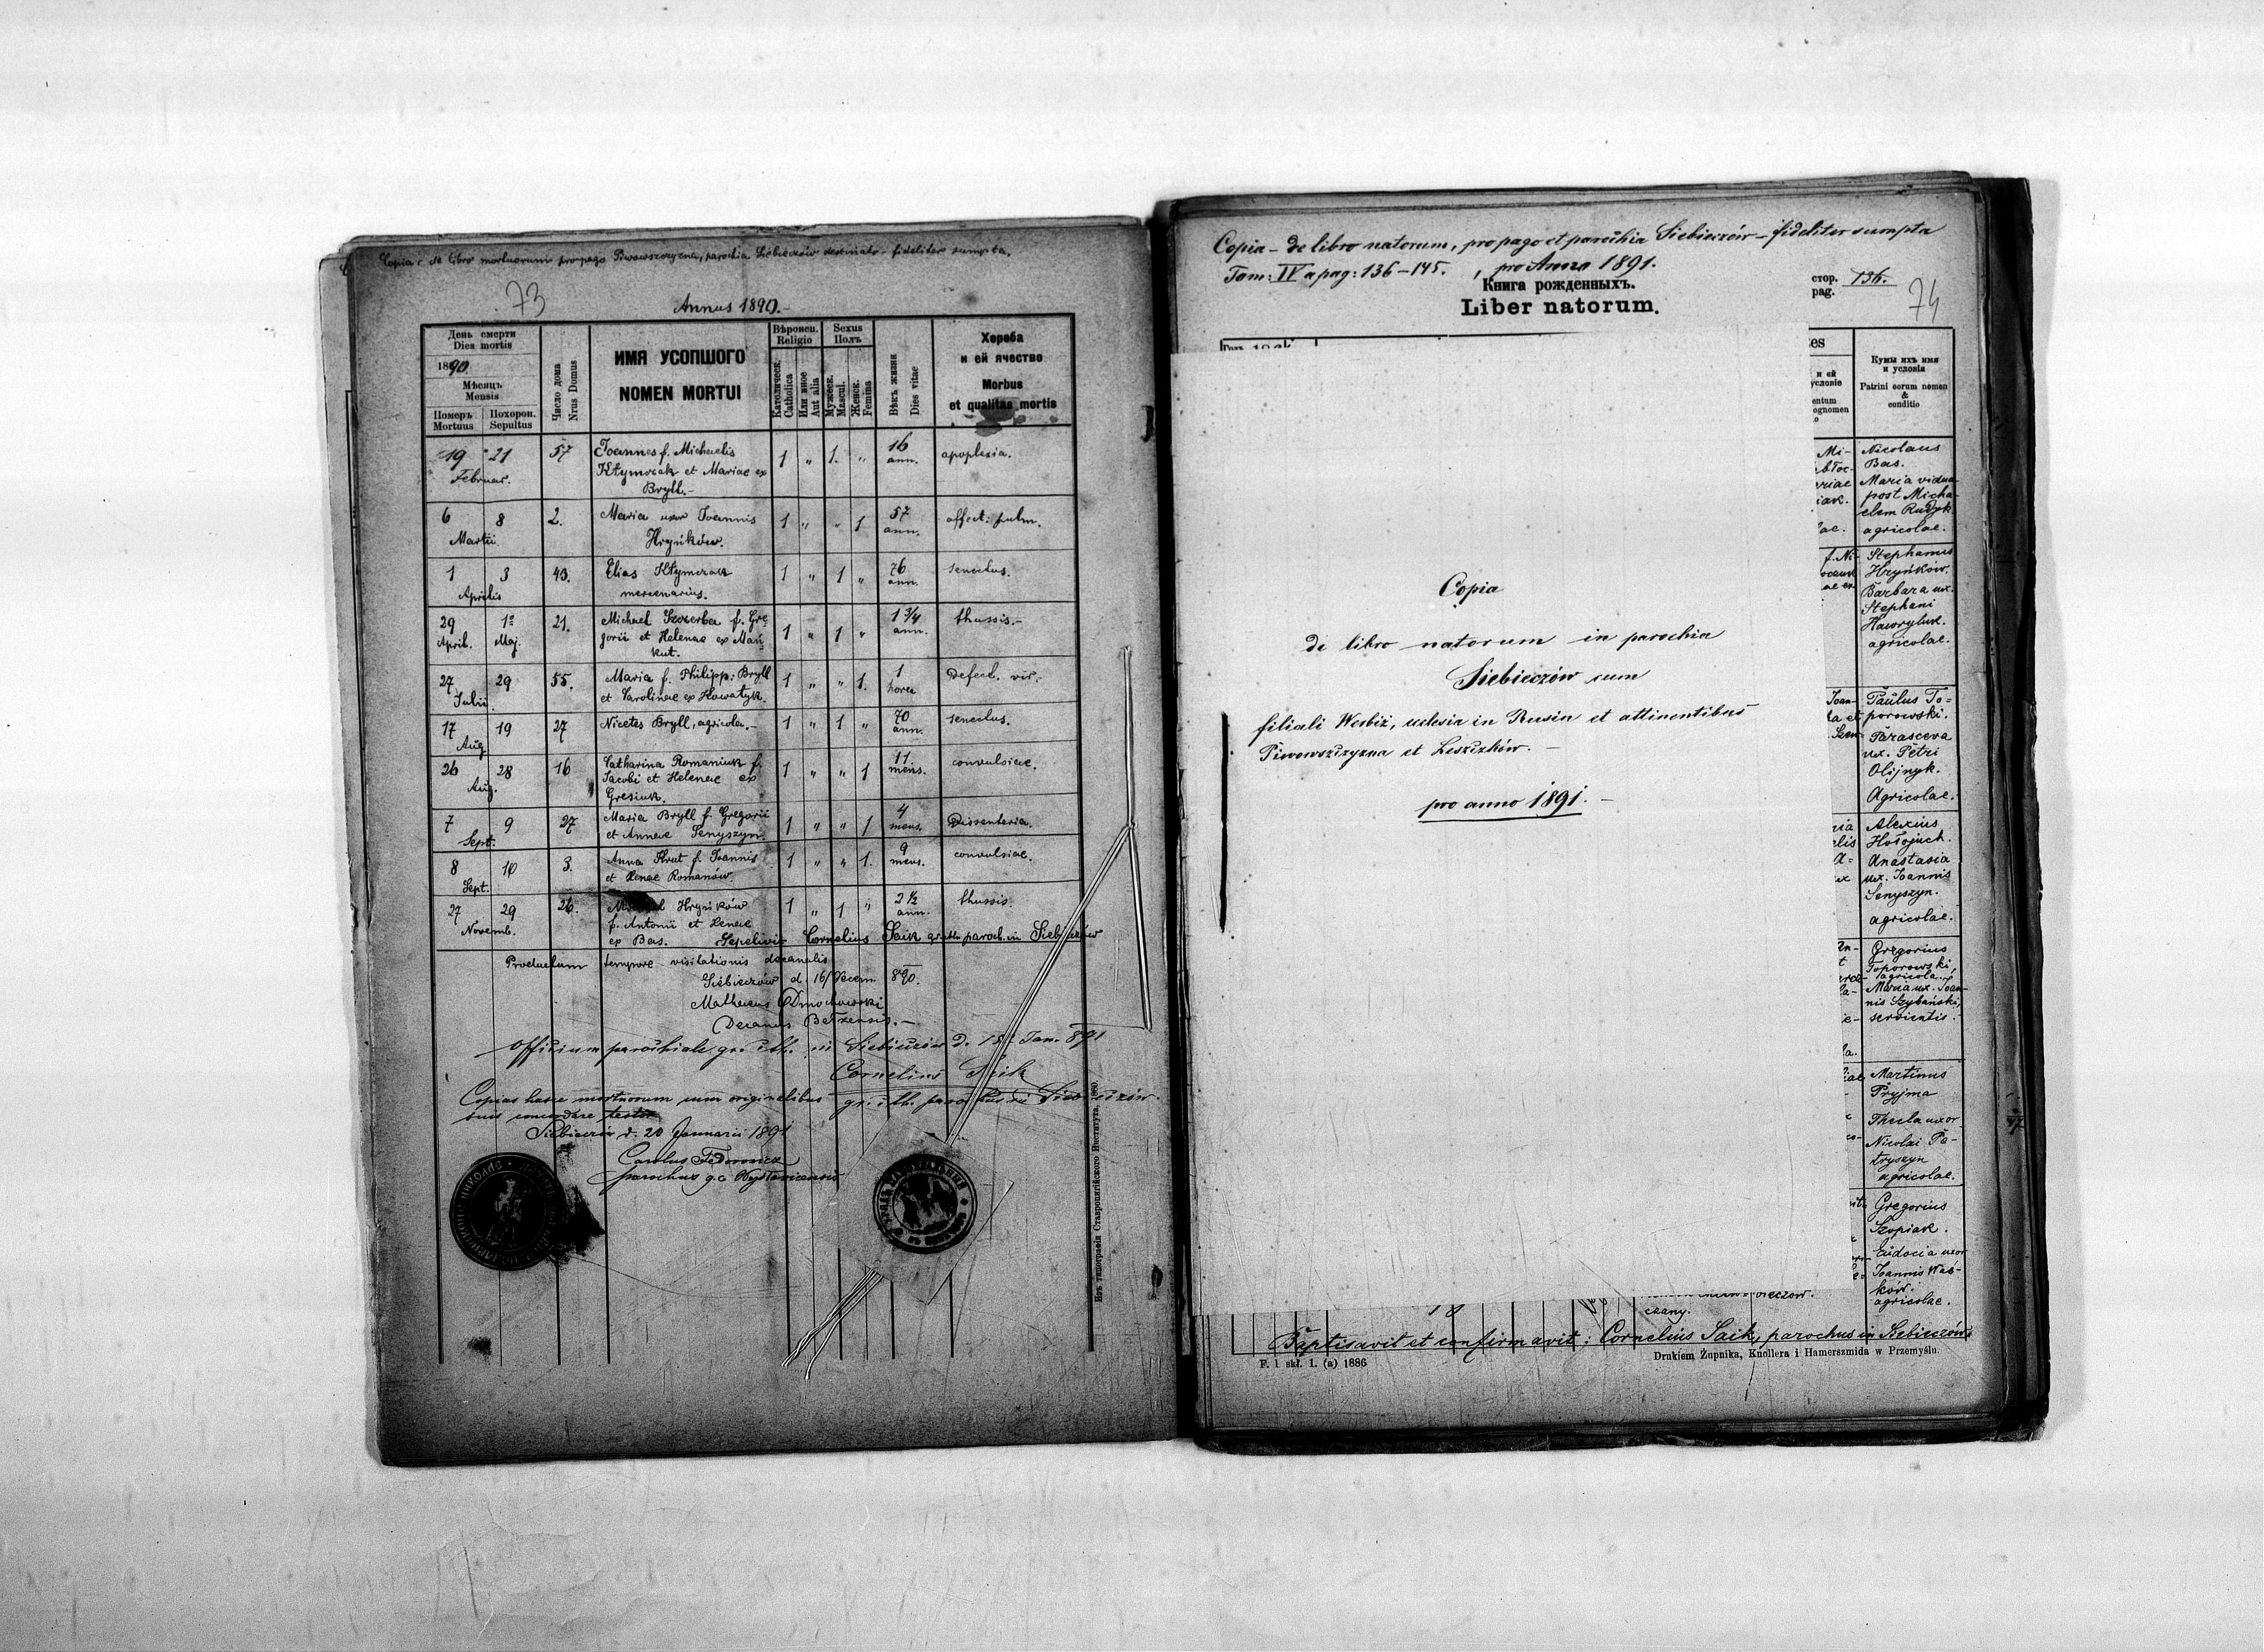 Copia : de libro mortuorum pro pago Piwowszczyzna, parochia Siebieczów destinato - fideliter sumpta.
73
Annus 1890.-
День смерти
Dies mortis
1890.
Мѣсяцъ
Mensis
Померъ Похорон.
Mortuus Sepultus
Число дома
Nrus Domus
ИМЯ УСОПШОГО
NOMEN MORTUI
Вѣроисп.
Religio
Католическ.
Catholica
Или иное
Aut alia
Sexus
Полъ
Мужеск.
Mascul.
Женск.
Femina
Вѣкъ жизни
Dies vitae
Хороба
и ей ячество
Morbus
et qualitas mortis
19 21 57 Joannes f. Michaelis 1 " 1. " 16 apoplexia.
Februar. Kłymczak et Mariae ex ann.
Bryll.-
6 8 2. Maria uxor Joannis 1 " " 1 57 affect: pulm.
Martii Hryńków. ann.
1 3 43. Elias Kłymczak 1 " 1 " 76 senectus.
Aprilis mercenarius. ann.
29 1º 21. Michael Szczerba f. Gre- 1 " 1 " 1 3/4 thussis.-
April. Maj. gorii et Helenae ex Mań- ann.
kut.
27 29 55. Maria f. Philipp: Bryll 1 " " 1. 1 Defect. vir.
Julii. et Carolinae ex Howatyk. hora
17 19 27 Nicetes Bryll, agricola.- 1 " 1 " 70 senectus.
Aug. ann.
26 28 16 Catharina Romaniuk f. 1 " " 1 11 convulsiae.
Aug. Jacobi et Helenae ex mens.
Gresiuk.
7 9 27 Maria Bryll f. Gregorii 1 " " 1 4 Dissenteria.
Sept. et Annae Senyszyn mens.
8 10 3. Anna Krut f. Joannis 1 " " 1. 9 convulsiae.
Sept. et Xenae Romanów. mens.
27 29 26. Michael Hryńków 1 " 1 " 2 1/2 thussis.
Novemb. f. Antonii et Xeniae ann.
ex Bas. Sepelivit Cornelius Saik gr. cath. paroch. in Siebieczów
Productum tempore visitationis decanalis
Siebieczów d. 16/Decem 890.
Mathaeus
Decanus Bełzensis.-
Officium parochiale gr. cth. in Siebieczów d. 15 Jan. 891
Cornelius Saik
gr. cth. parochus in Siebieczów.
Copias hasce mortuorum cum originalibus
suis concordare testor
Siebieczów d. 20 Januarii 1891
Carolus Fedorowicz
parochus g. c.
Изъ типографіи Ставропигійского Института, 1880.
Copia - de libro natorum, pro pago et parochia Siebieczów - fideliter sumpta
Tom: IV a pag: 136-145. , pro Anno 1891.
Книга рожденныхъ.
Liber natorum.
стор.
pag. 136.
74
Copia
de libro natorum in parochia
Siebieczów cum
filiali Werbiż, ecclesia in Rusin et attinentibus
Piwowszczyzna et Leszczków.-
pro anno 1891.-
Кумы ихъ имя
и условія
Patrini eorum nomen
&
conditio
Nicolaus
Bas.
Maria vidua
post Micha-
elem Rudyk
agricolae.
Stephanus
Hryńków.
Barbara ux.
Stephani
Hawryluk.
agricolae.
Paulus To-
porowski.
Parasceva
ux. Petri
Olijnyk.
Agricolae.
Alexius
Hołojuch.
Anastasia
ux. Joannis
Senyszyn.
agricolae.
Gregorius
Toporowski,
agricola.
Maria ux. Joan-
nis Szybański,
servientis.
Martinus
Pryjma
Thecla uxor
Nicolai Pe-
tryszyn
agricolae.
Gregorius
Szopiak.
Eudocia uxor
Joannis Waś-
ków.
agricolae.
czany.
Baptisavit et confirmavit : Cornelius Saik, parochus in Siebieczów
F. 1 skł. 1. (a) 1886
Drukiem Żupnika, Knollera i Hamerszmida w Przemyślu.